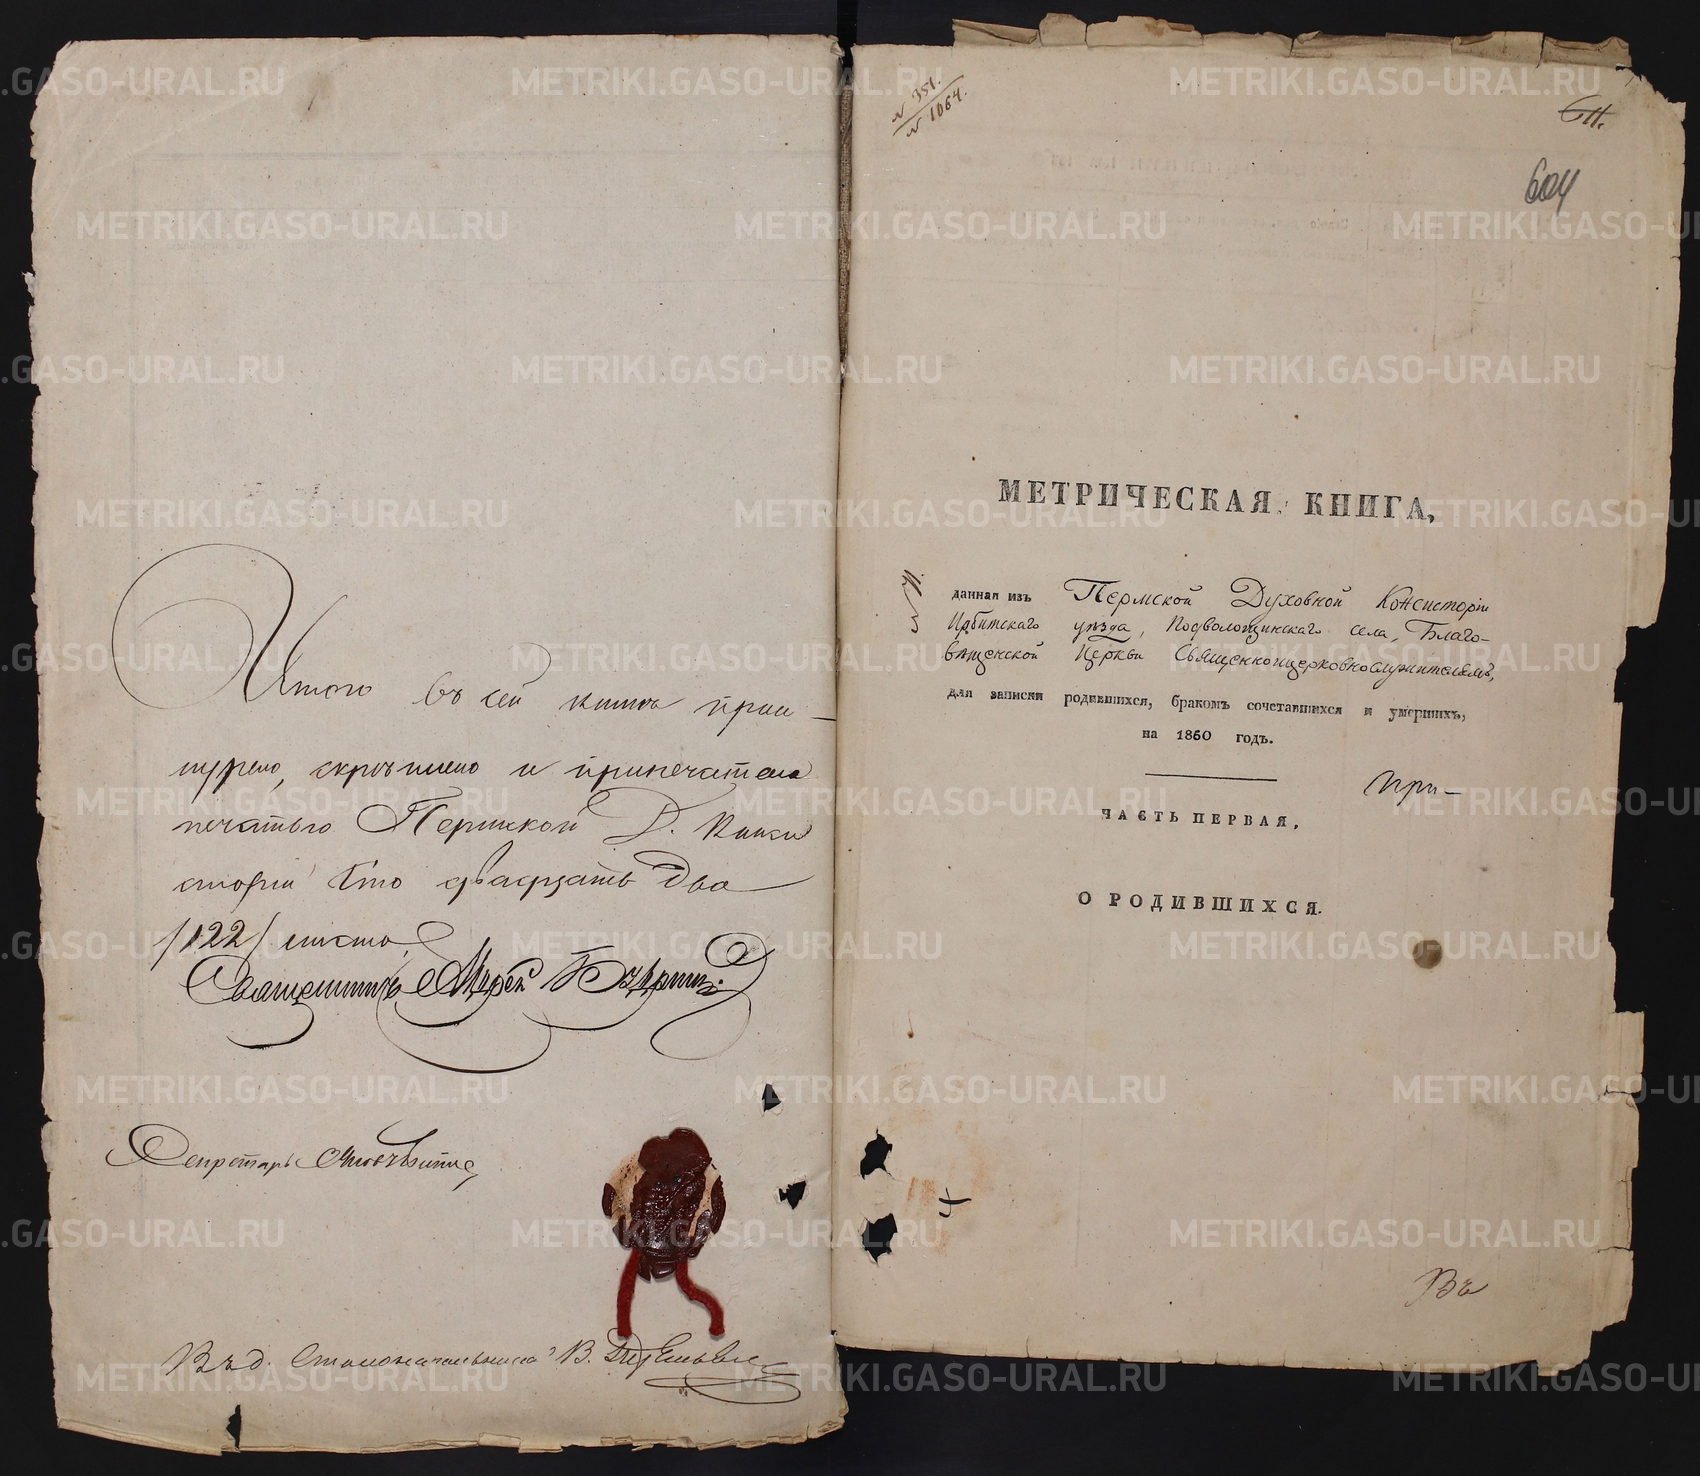 Итого въ сей книгѣ прошнурено, скрѣплено и припечатано
печатью Пермской Д. Конси
сторіи Сто двадцать два
/122/ листа.
Священникъ Андрей
Секретарь
В. д. Столоначальника В.
№ 351.
№ 1064.
611.
604
МЕТРИЧЕСКАЯ КНИГА,
данная изъ Пермской Духовной Консисторіи
Ирбитскаго уѣзда, Подволошинскаго села, Благо-
вѣщенской Церкви Священноцерковнослужителямъ,
для записки родившихся, бракомъ сочетавшихся и умершихъ,
на 1860 годъ.
При-
ЧАСТЬ ПЕРВАЯ,
О РОДИВШИХСЯ.
Въ
METRIKI.GASO-URAL.RU